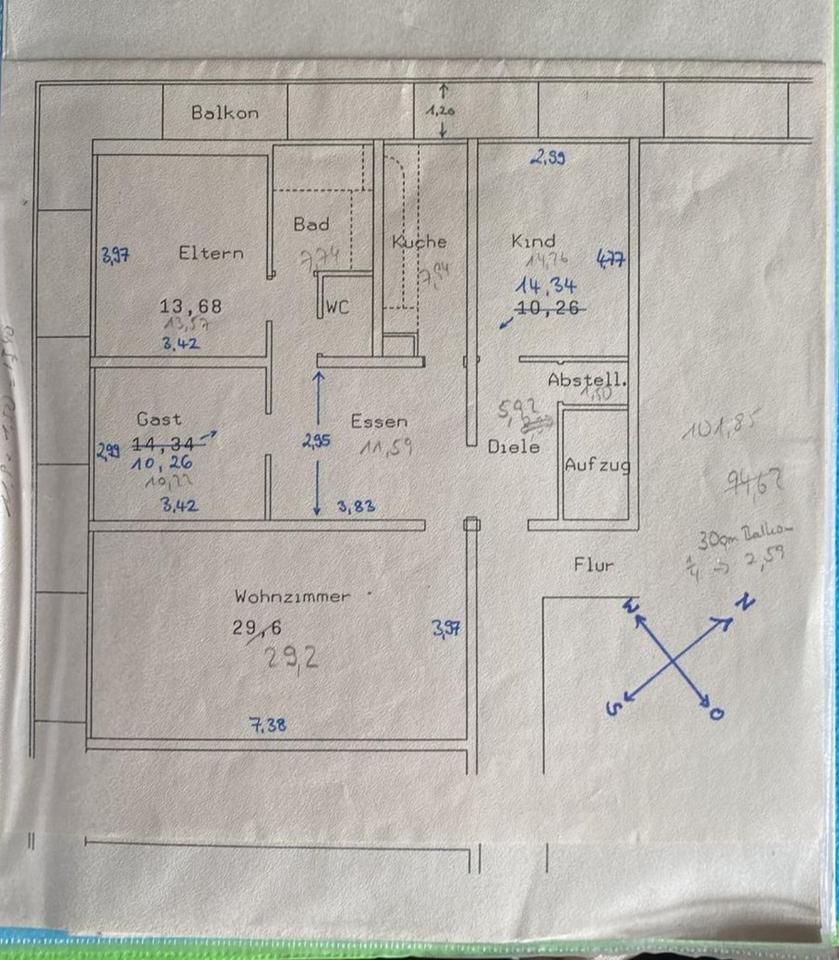 Balkon
1,20
2,99
Bad
7,74
Küche
7,94
Kind
14,76
4,77
14,34
10,26
3,97
Eltern
13,68
13,57
3,42
WC
Abstell.
1,50
Gast
14,34
2,99
10,26
3,42
Essen
11,59
2,95
3,83
5,92
Diele
Aufzug
101,85
94,62
30qm Balkon
1/4 → 2,59
Flur
Wohnzimmer
29,6
29,2
3,97
7,38
W
N
S
O